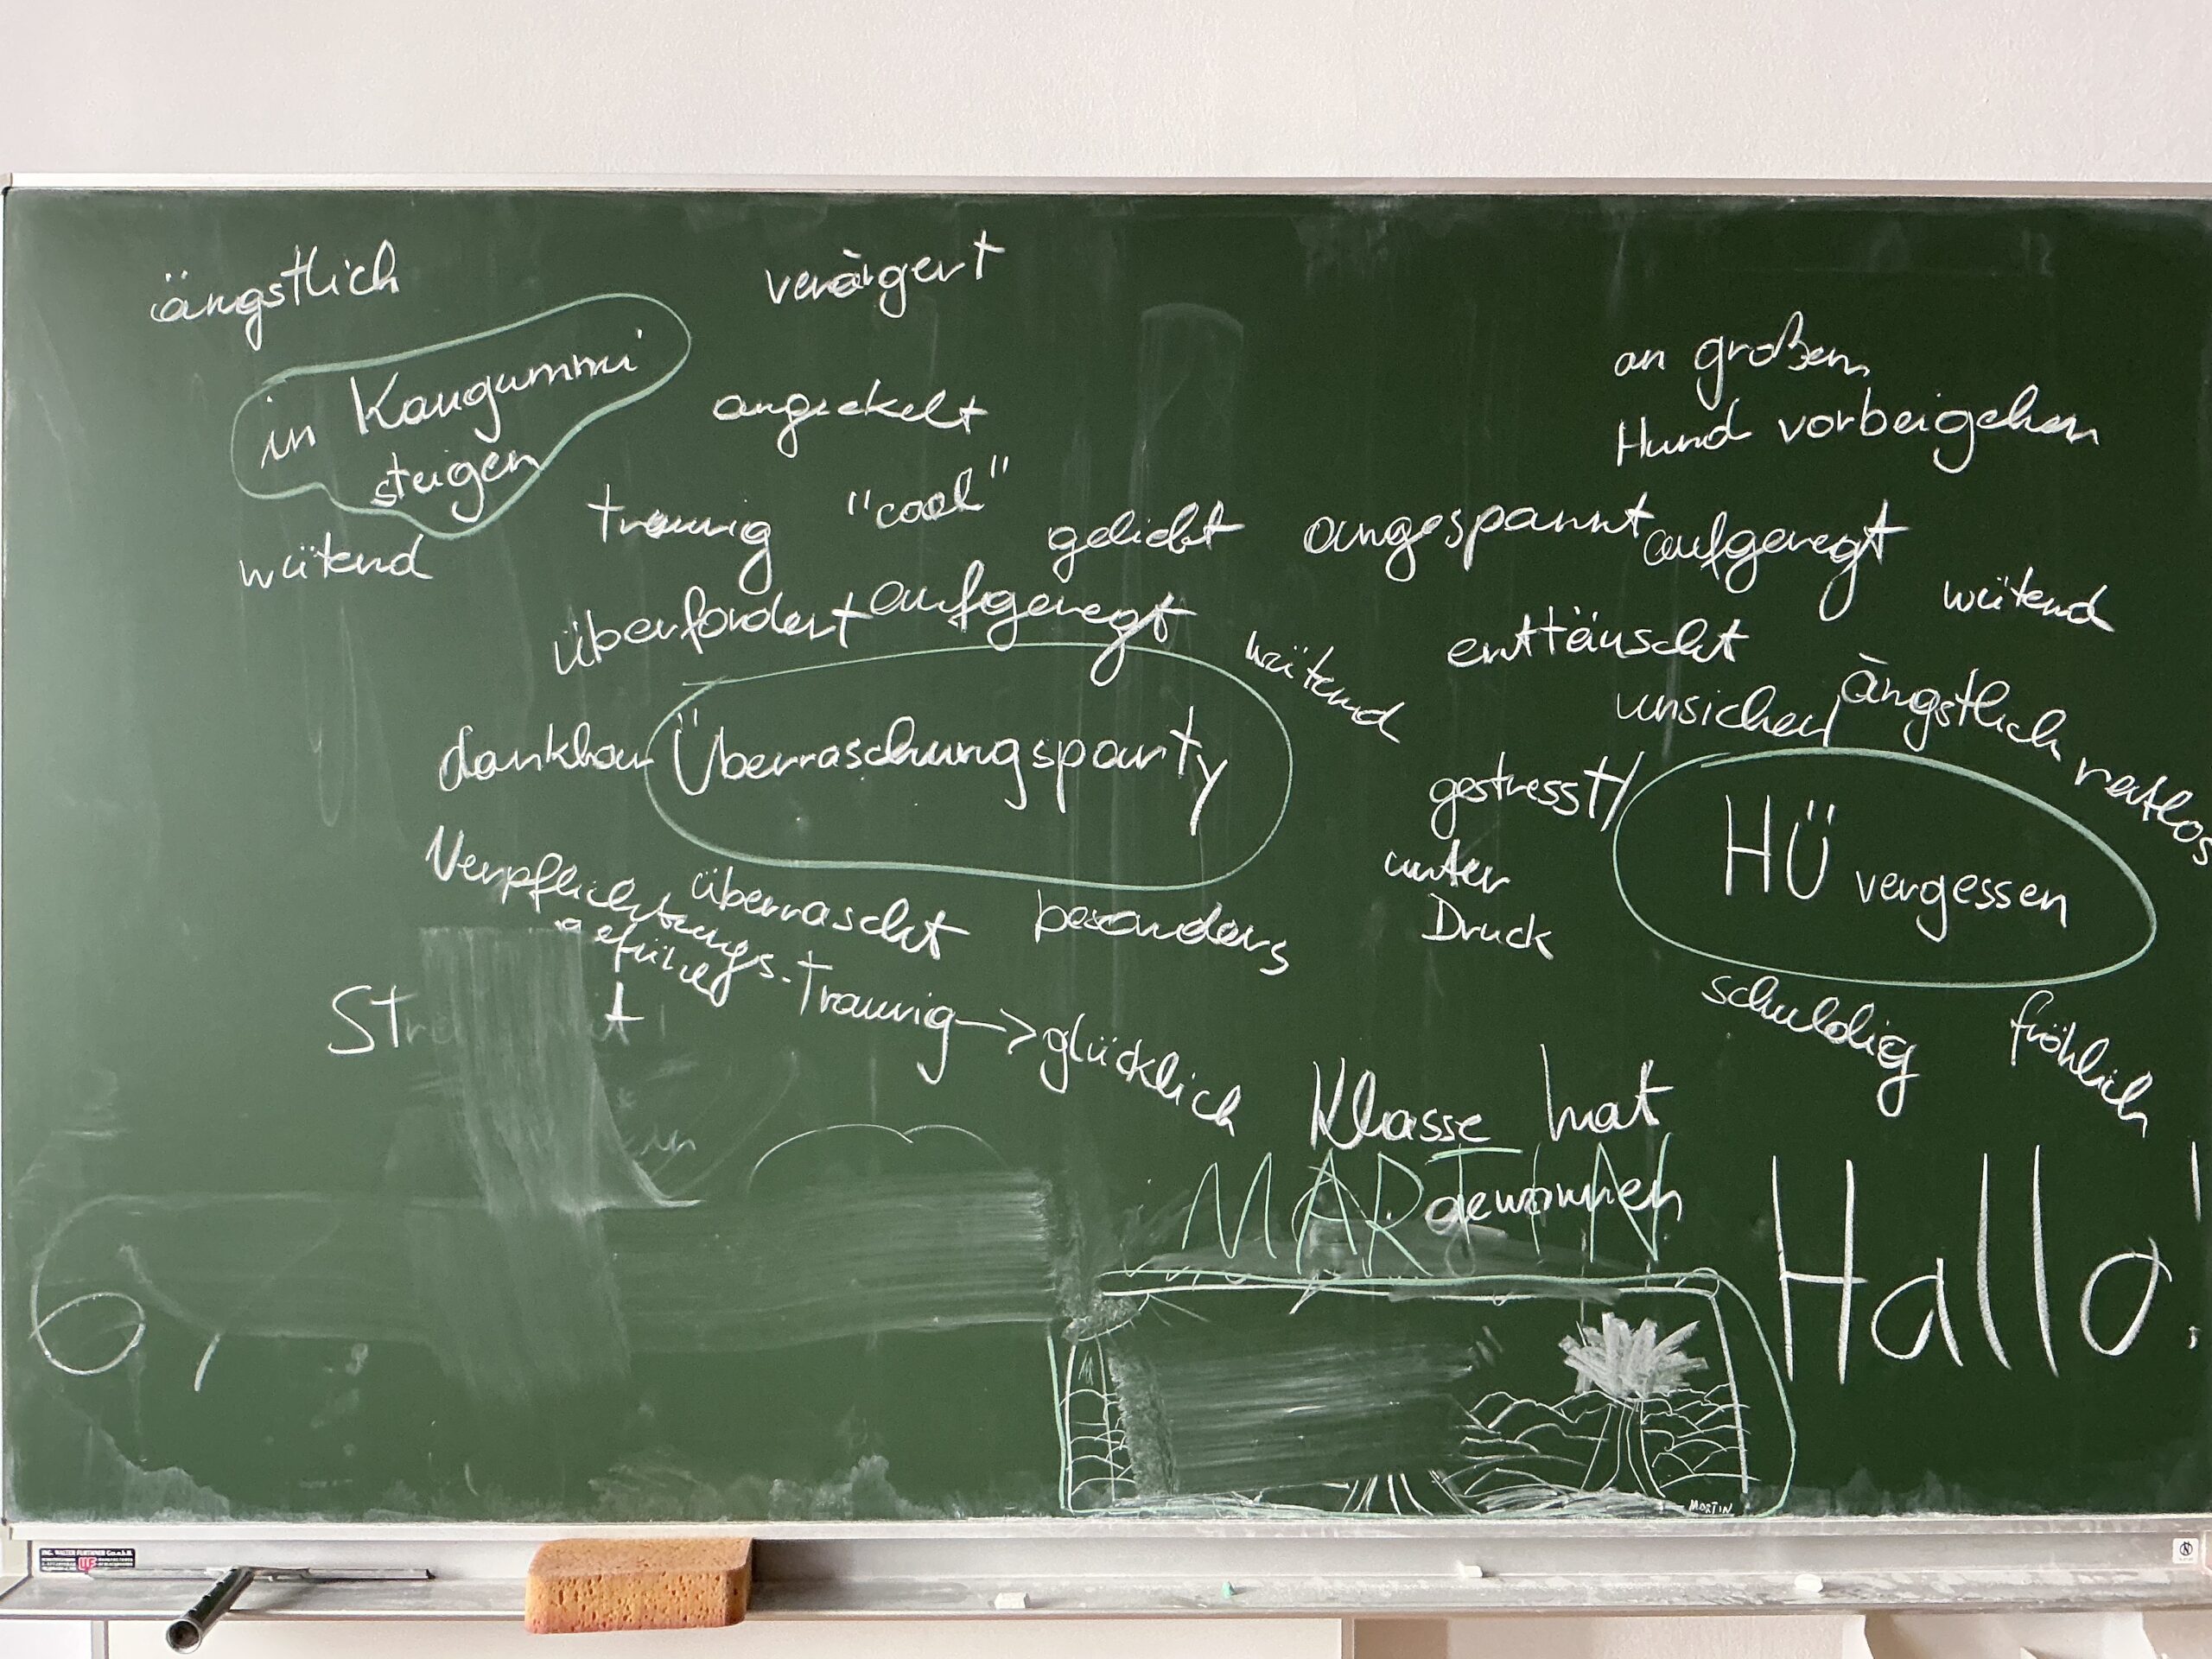 ängstlich
verärgert
in Kaugummi
steigen
angeekelt
wütend
traurig
"cool"
geliebt
überfordert
aufgeregt
wütend
dankbar
Überraschungsparty
Verpflichtungs-
gefühl
überrascht
besonders
traurig -> glücklich
an großem
Hund vorbeigehen
angespannt
aufgeregt
wütend
enttäuscht
unsicher
ängstlich
ratlos
gestresst/
unter
Druck
HÜ vergessen
schuldig
fröhlich
Klasse hat
gewonnen
MARTIN
Hallo!
6,
MARTIN